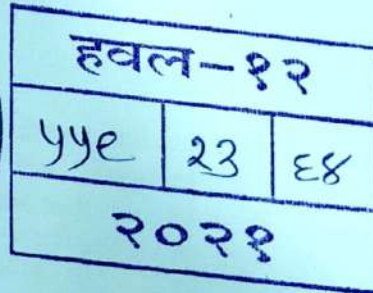 हवल-१२
५५९ २३ ६४
२०२१